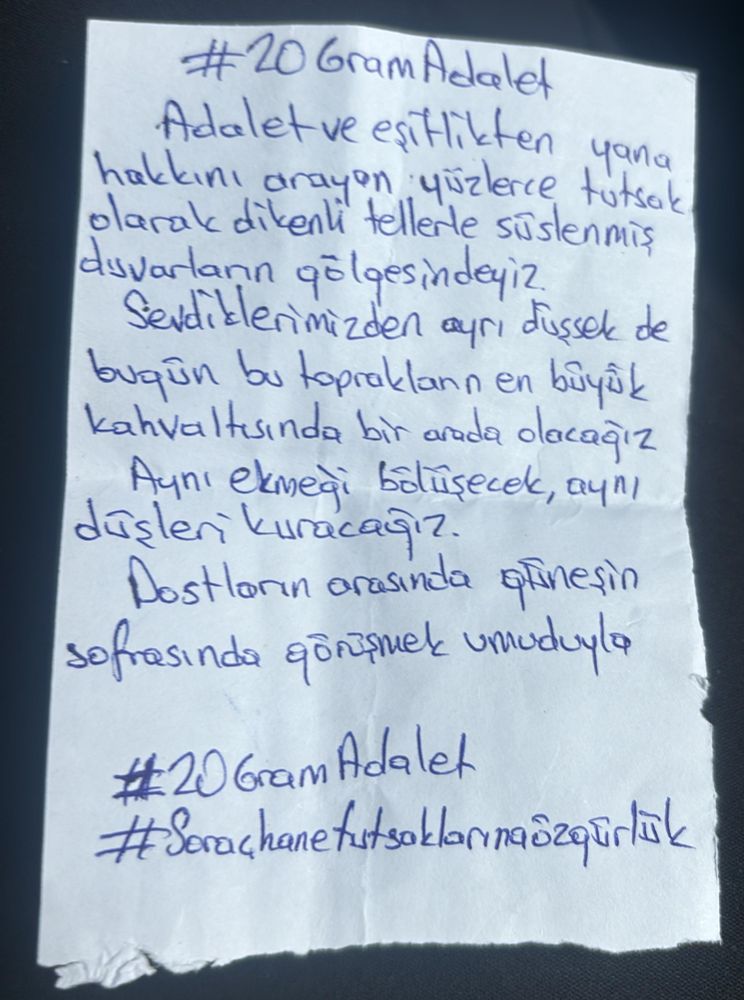 #20GramAdalet
Adalet ve eşitlikten yana
hakkını arayan yüzlerce tutsak
olarak dikenli tellerle süslenmiş
duvarların gölgesindeyiz.
Sevdiklerimizden ayrı düşsek de
bugün bu toprakların en büyük
kahvaltısında bir arada olacağız
Aynı ekmeği bölüşecek, aynı
düşleri kuracağız.
Dostların arasında güneşin
sofrasında görüşmek umuduyla
#20GramAdalet
#Saraçhanetutsaklarınaözgürlük